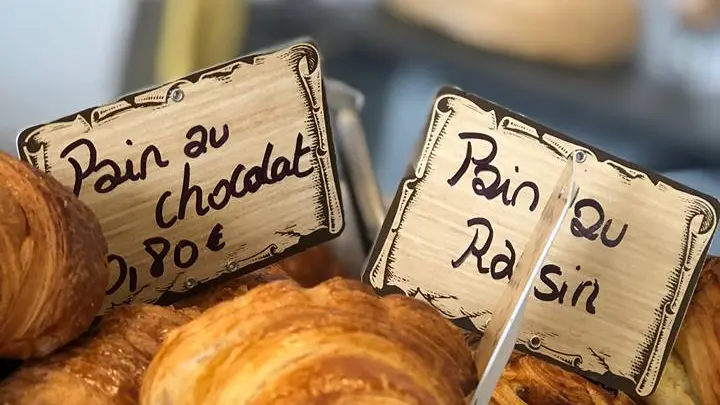 Pain au
chocolat
0,80 €
Pain au
Raisin